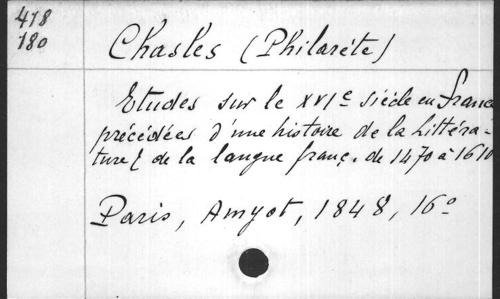 418
180
Chasles (Philarète)
Etudes sur le XVIe siècle en France
précédées d'une histoire de la Littéra-
ture & de la langue franç. de 1470 à 1610
Paris, Amyot, 1848, 16º